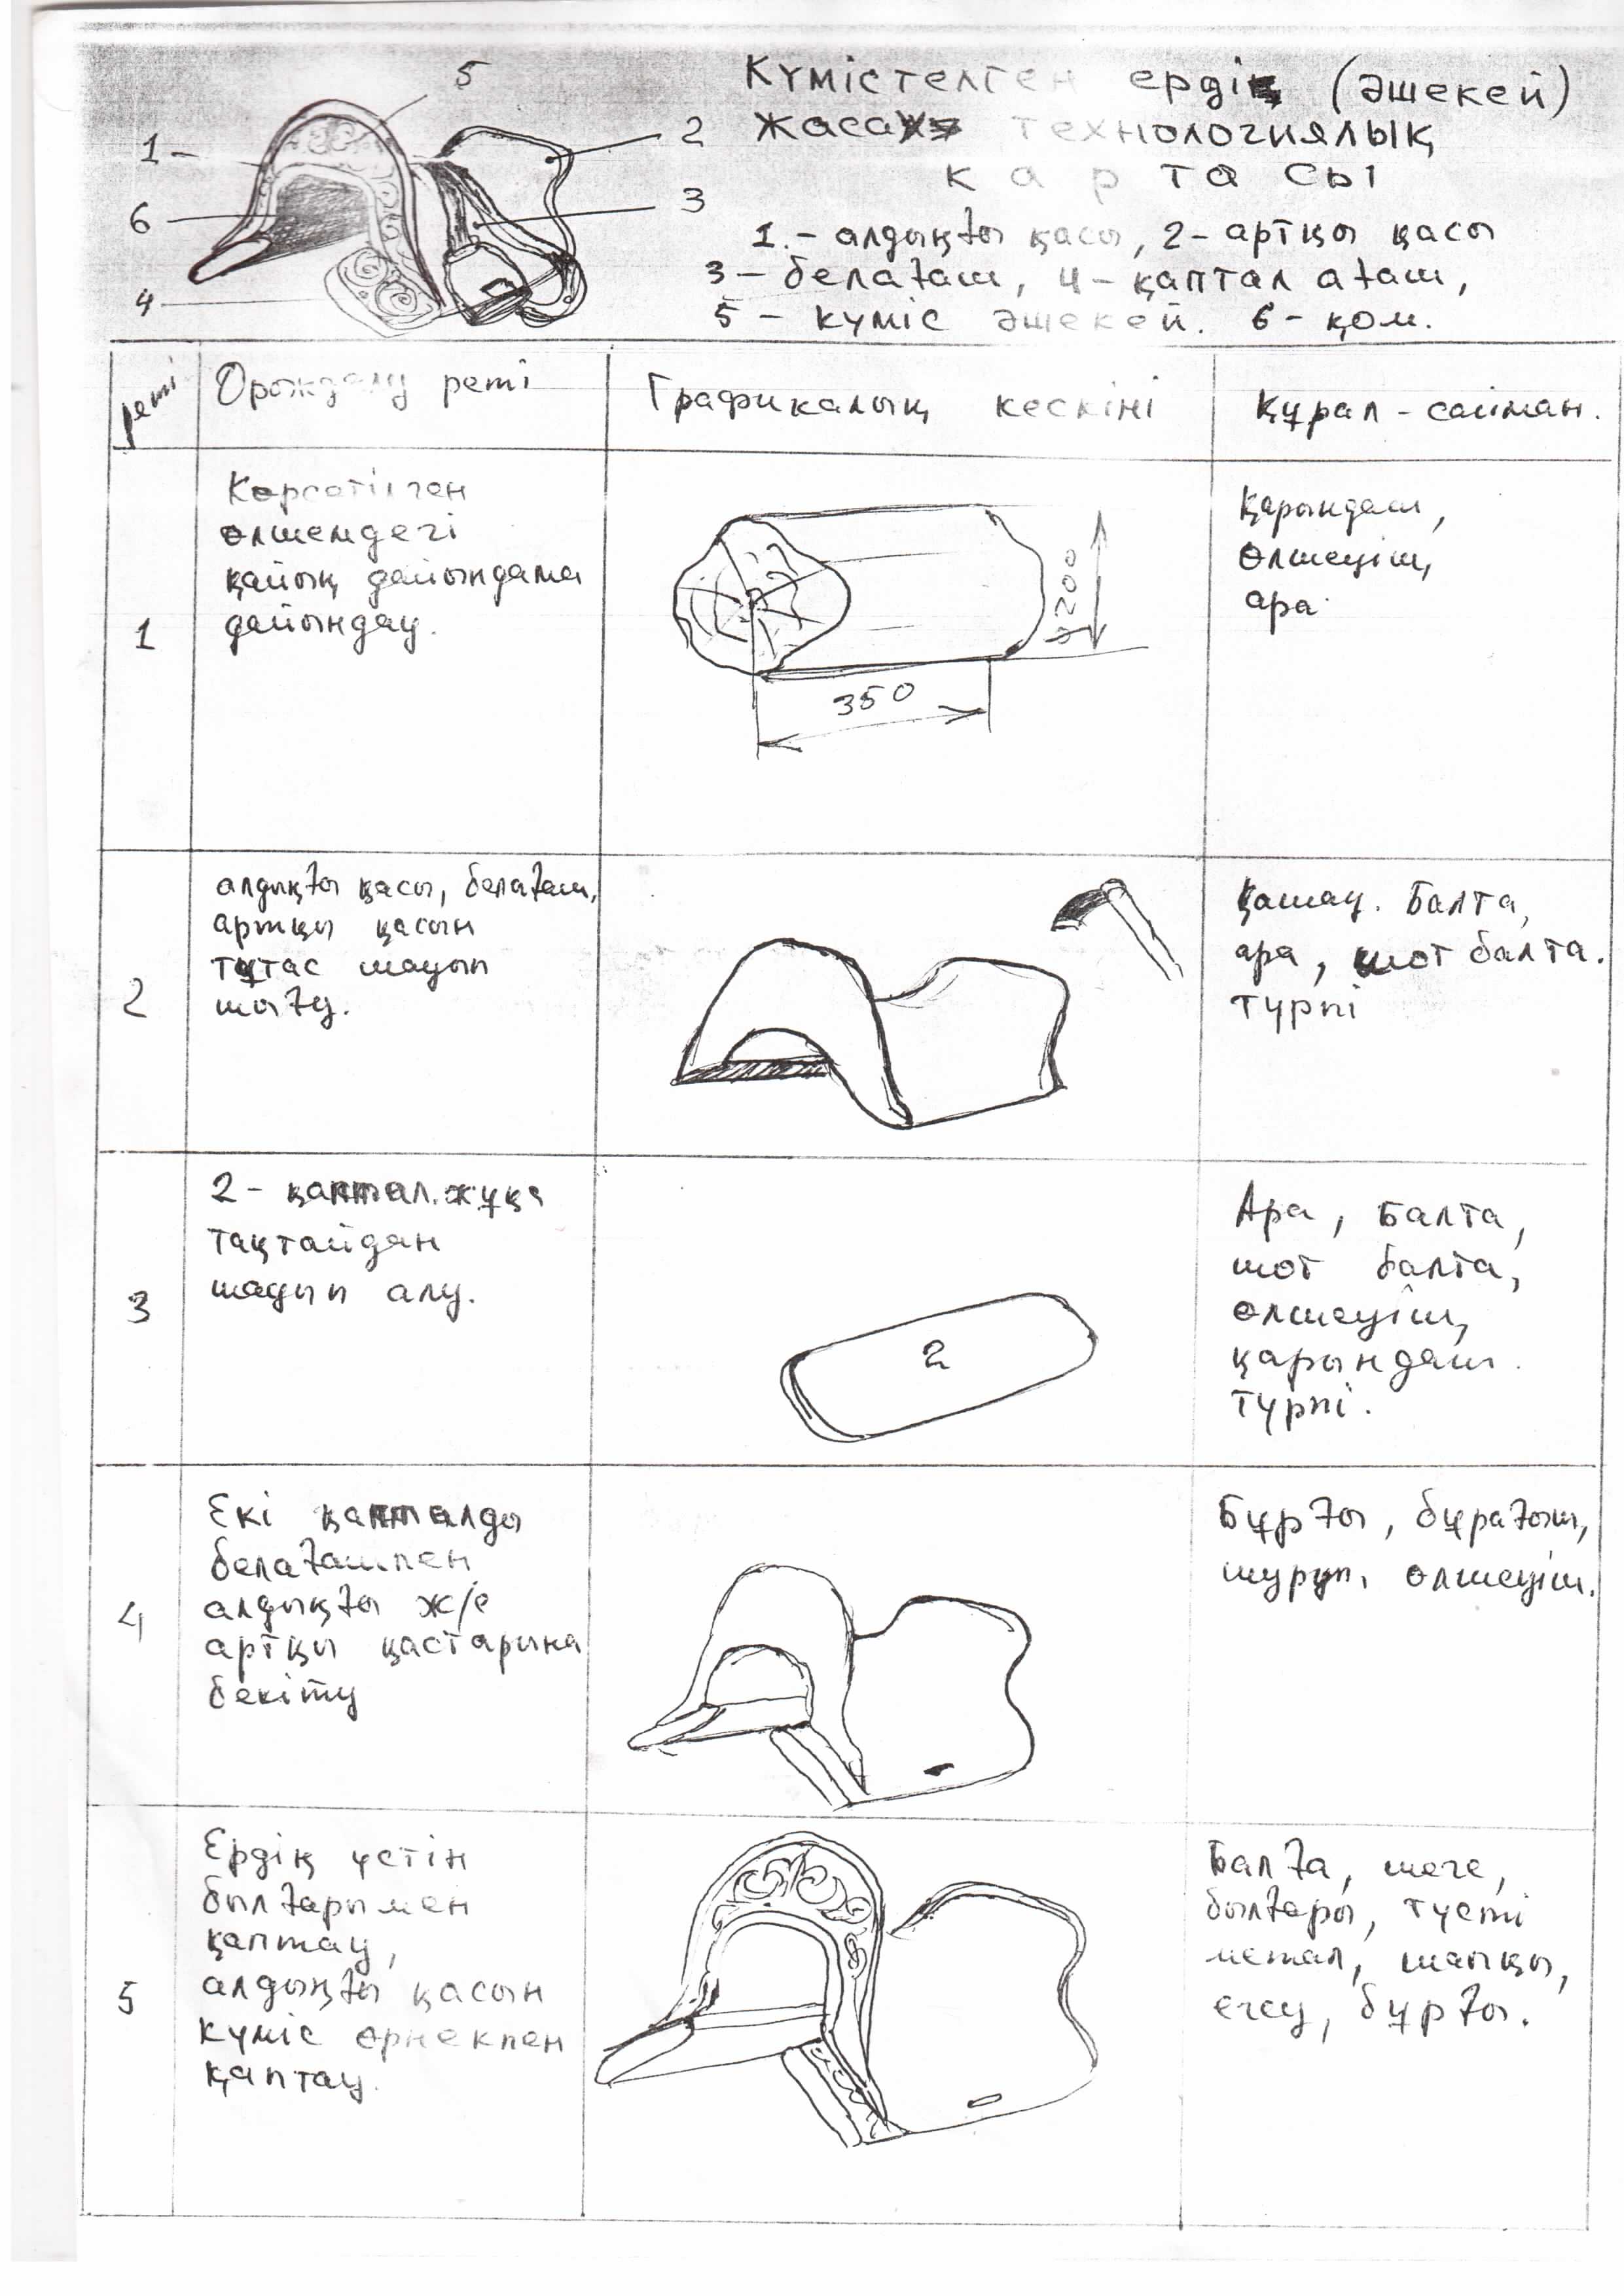 5
Күмістелген ердің (әшекей)
1
2
жасау технологиялық
картасы
6
3
1.- алдыңғы қасы, 2- артқы қасы
3 - белағаш, 4- қаптал ағаш,
4
5 - күміс әшекей. 6- қом.
реті
Орындалу реті
Графикалық кескіні
Құрал-сайман.
1
Көрсетілген
өлшемдегі
қайың дайындама
дайындау.
200
350
Қарындаш,
Өлшеуіш,
ара
2
алдыңғы қасы, белағаш,
артқы қасын
тұтас шауып
шығу.
Қашау. Балта,
ара, шот балта.
түрпі
3
2- қаптал.жұқа
тақтайдан
шауып алу.
2
Ара, Балта,
шот балта,
өлшеуіш,
қарындаш.
түрпі.
4
Екі қапталды
белағашпен
алдыңғы ж/е
артқы қастарына
бекіту
Бұрғы, бұрағыш,
шуруп, өлшеуіш.
5
Ердің үстін
былғарымен
қаптау,
алдыңғы қасын
күміс өрнекпен
қаптау.
Балға, шеге,
былғары, түсті
метал, шапқы,
егеу, бұрғы.